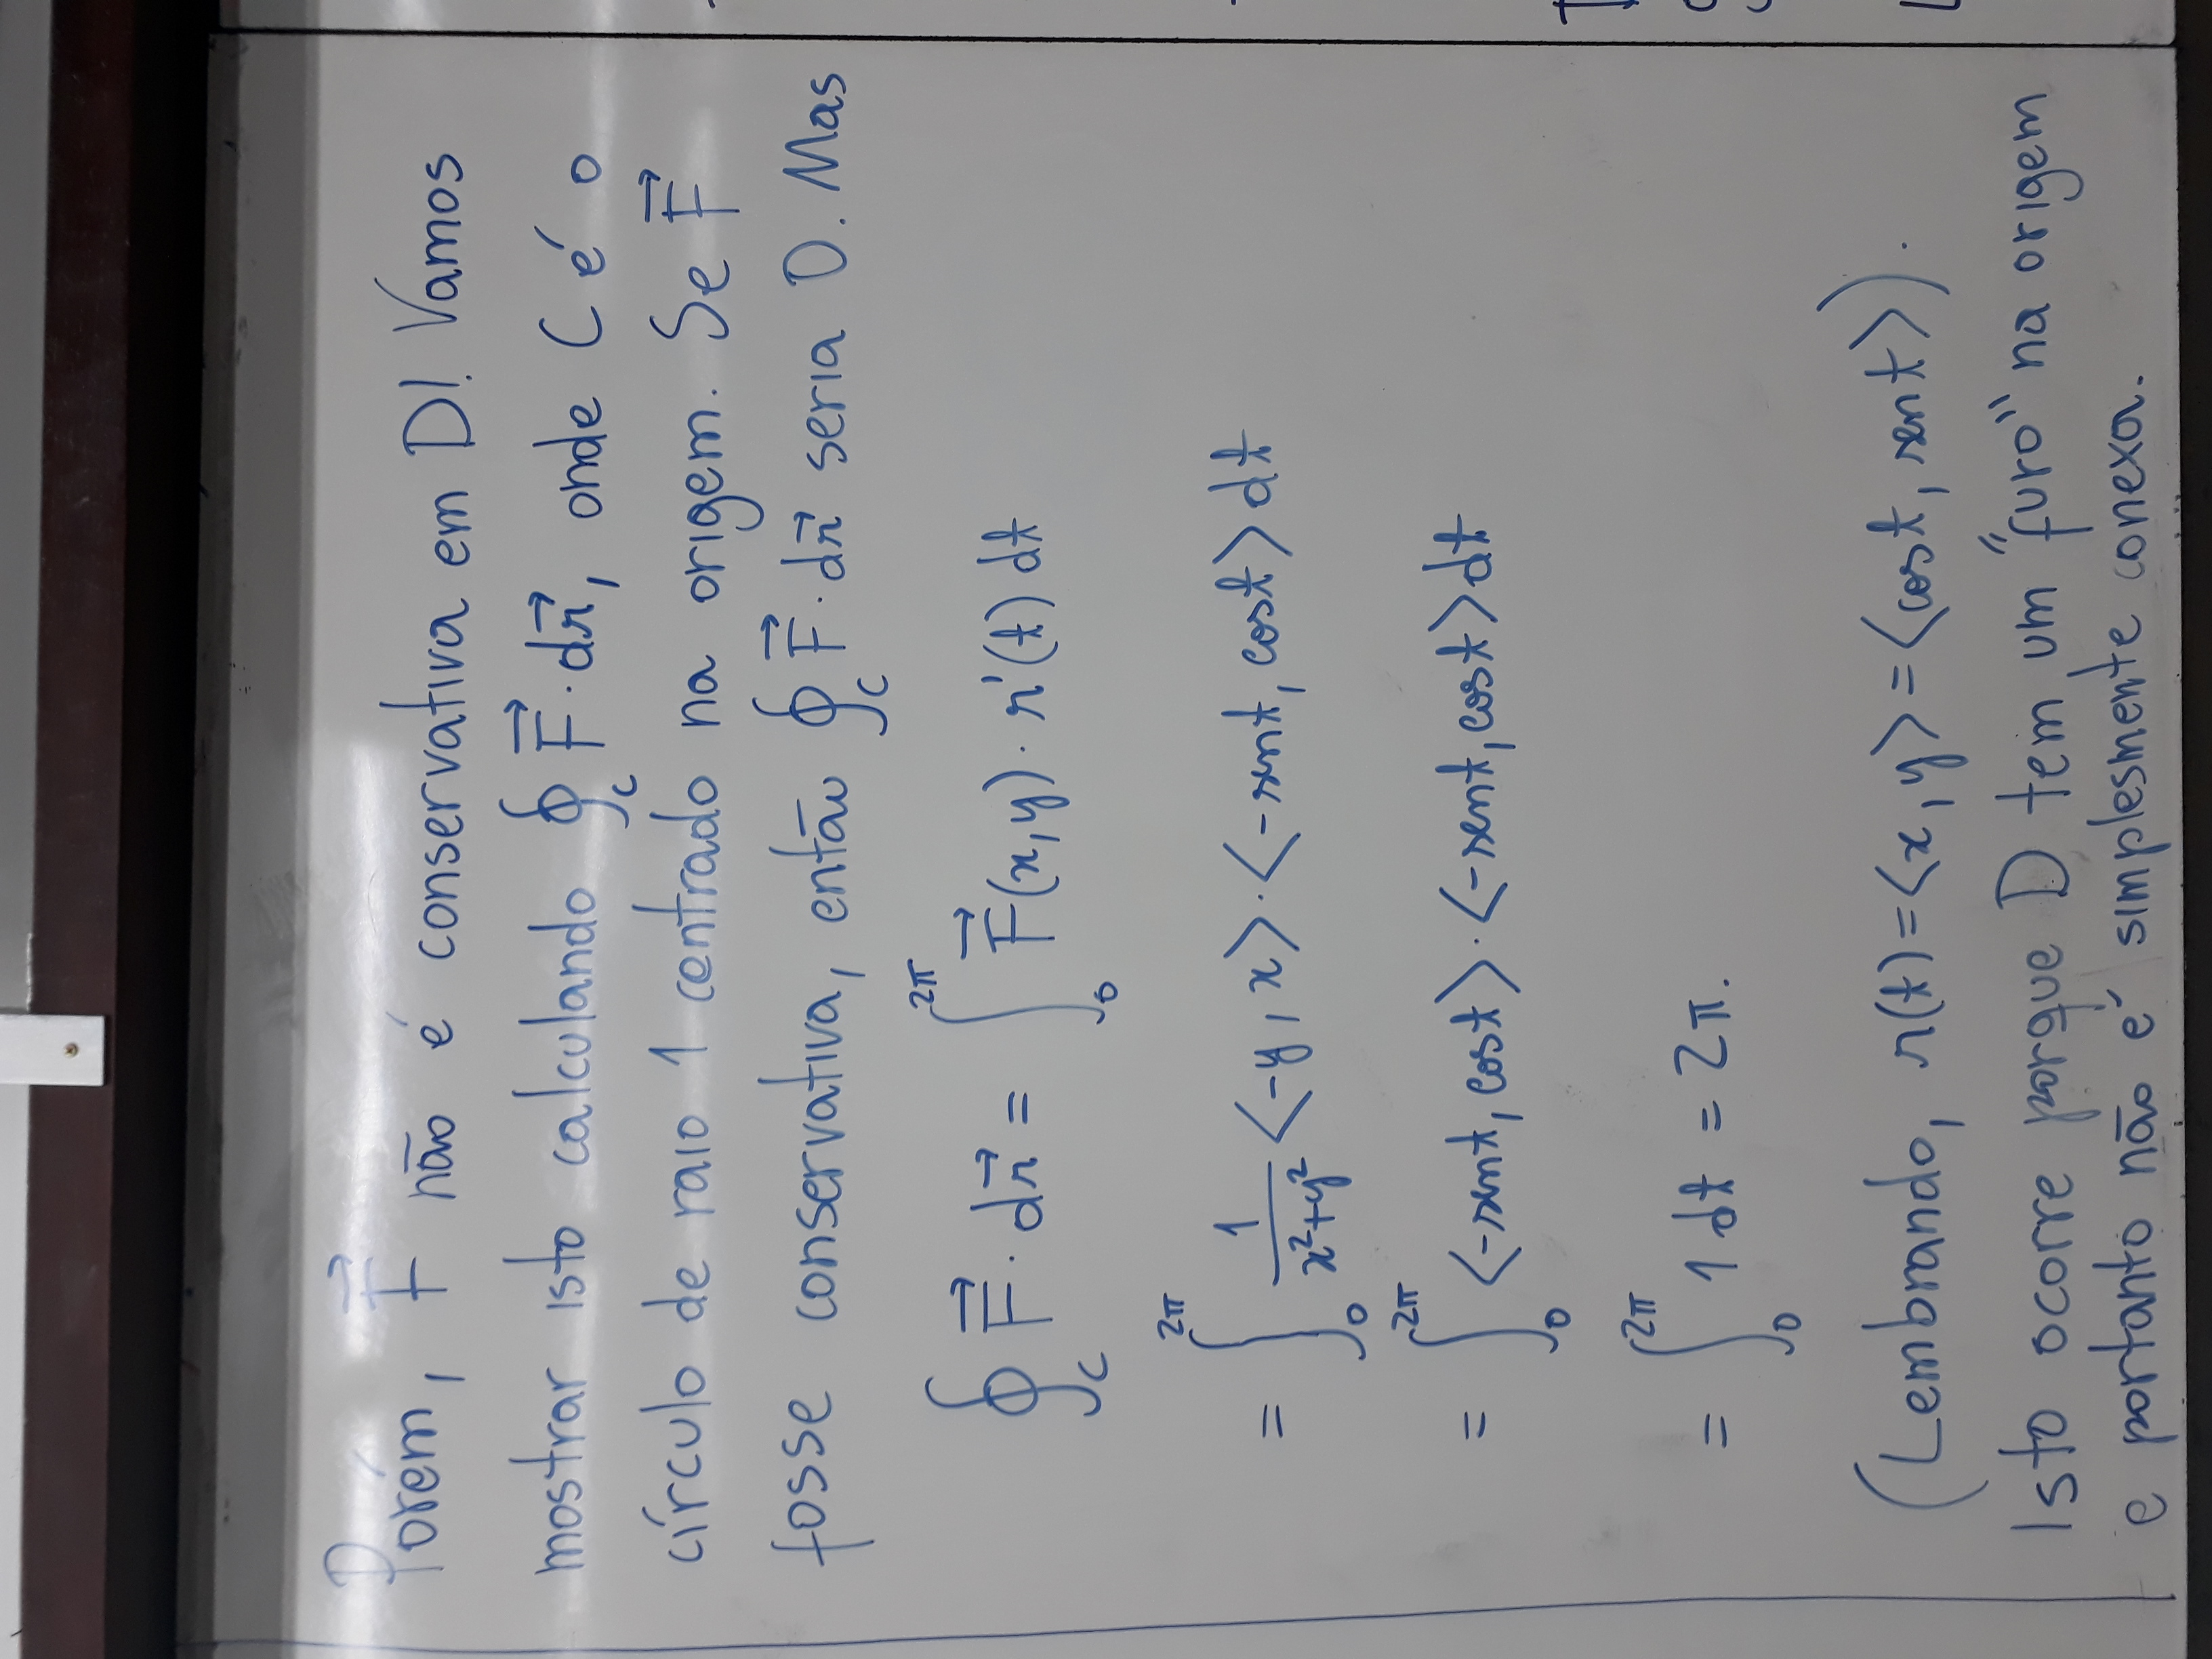 Porém, F⃗ não é conservativa em D! Vamos
mostrar isto calculando ∮_C F⃗ · dr⃗, onde C é o
círculo de raio 1 centrado na origem. Se F⃗
fosse conservativa, então ∮_C F⃗ · dr⃗ seria 0. Mas
∮_C F⃗ · dr⃗ = ∫_0^{2π} F⃗(x,y) · r'(t) dt
= ∫_0^{2π} 1/(x²+y²) ⟨-y, x⟩ · ⟨-sent, cost⟩ dt
= ∫_0^{2π} ⟨-sent, cost⟩ · ⟨-sent, cost⟩ dt
= ∫_0^{2π} 1 dt = 2π.
(Lembrando, r(t) = ⟨x, y⟩ = ⟨cost, sent⟩).
Isto ocorre porque D tem um "furo" na origem
e portanto não é simplesmente conexa.